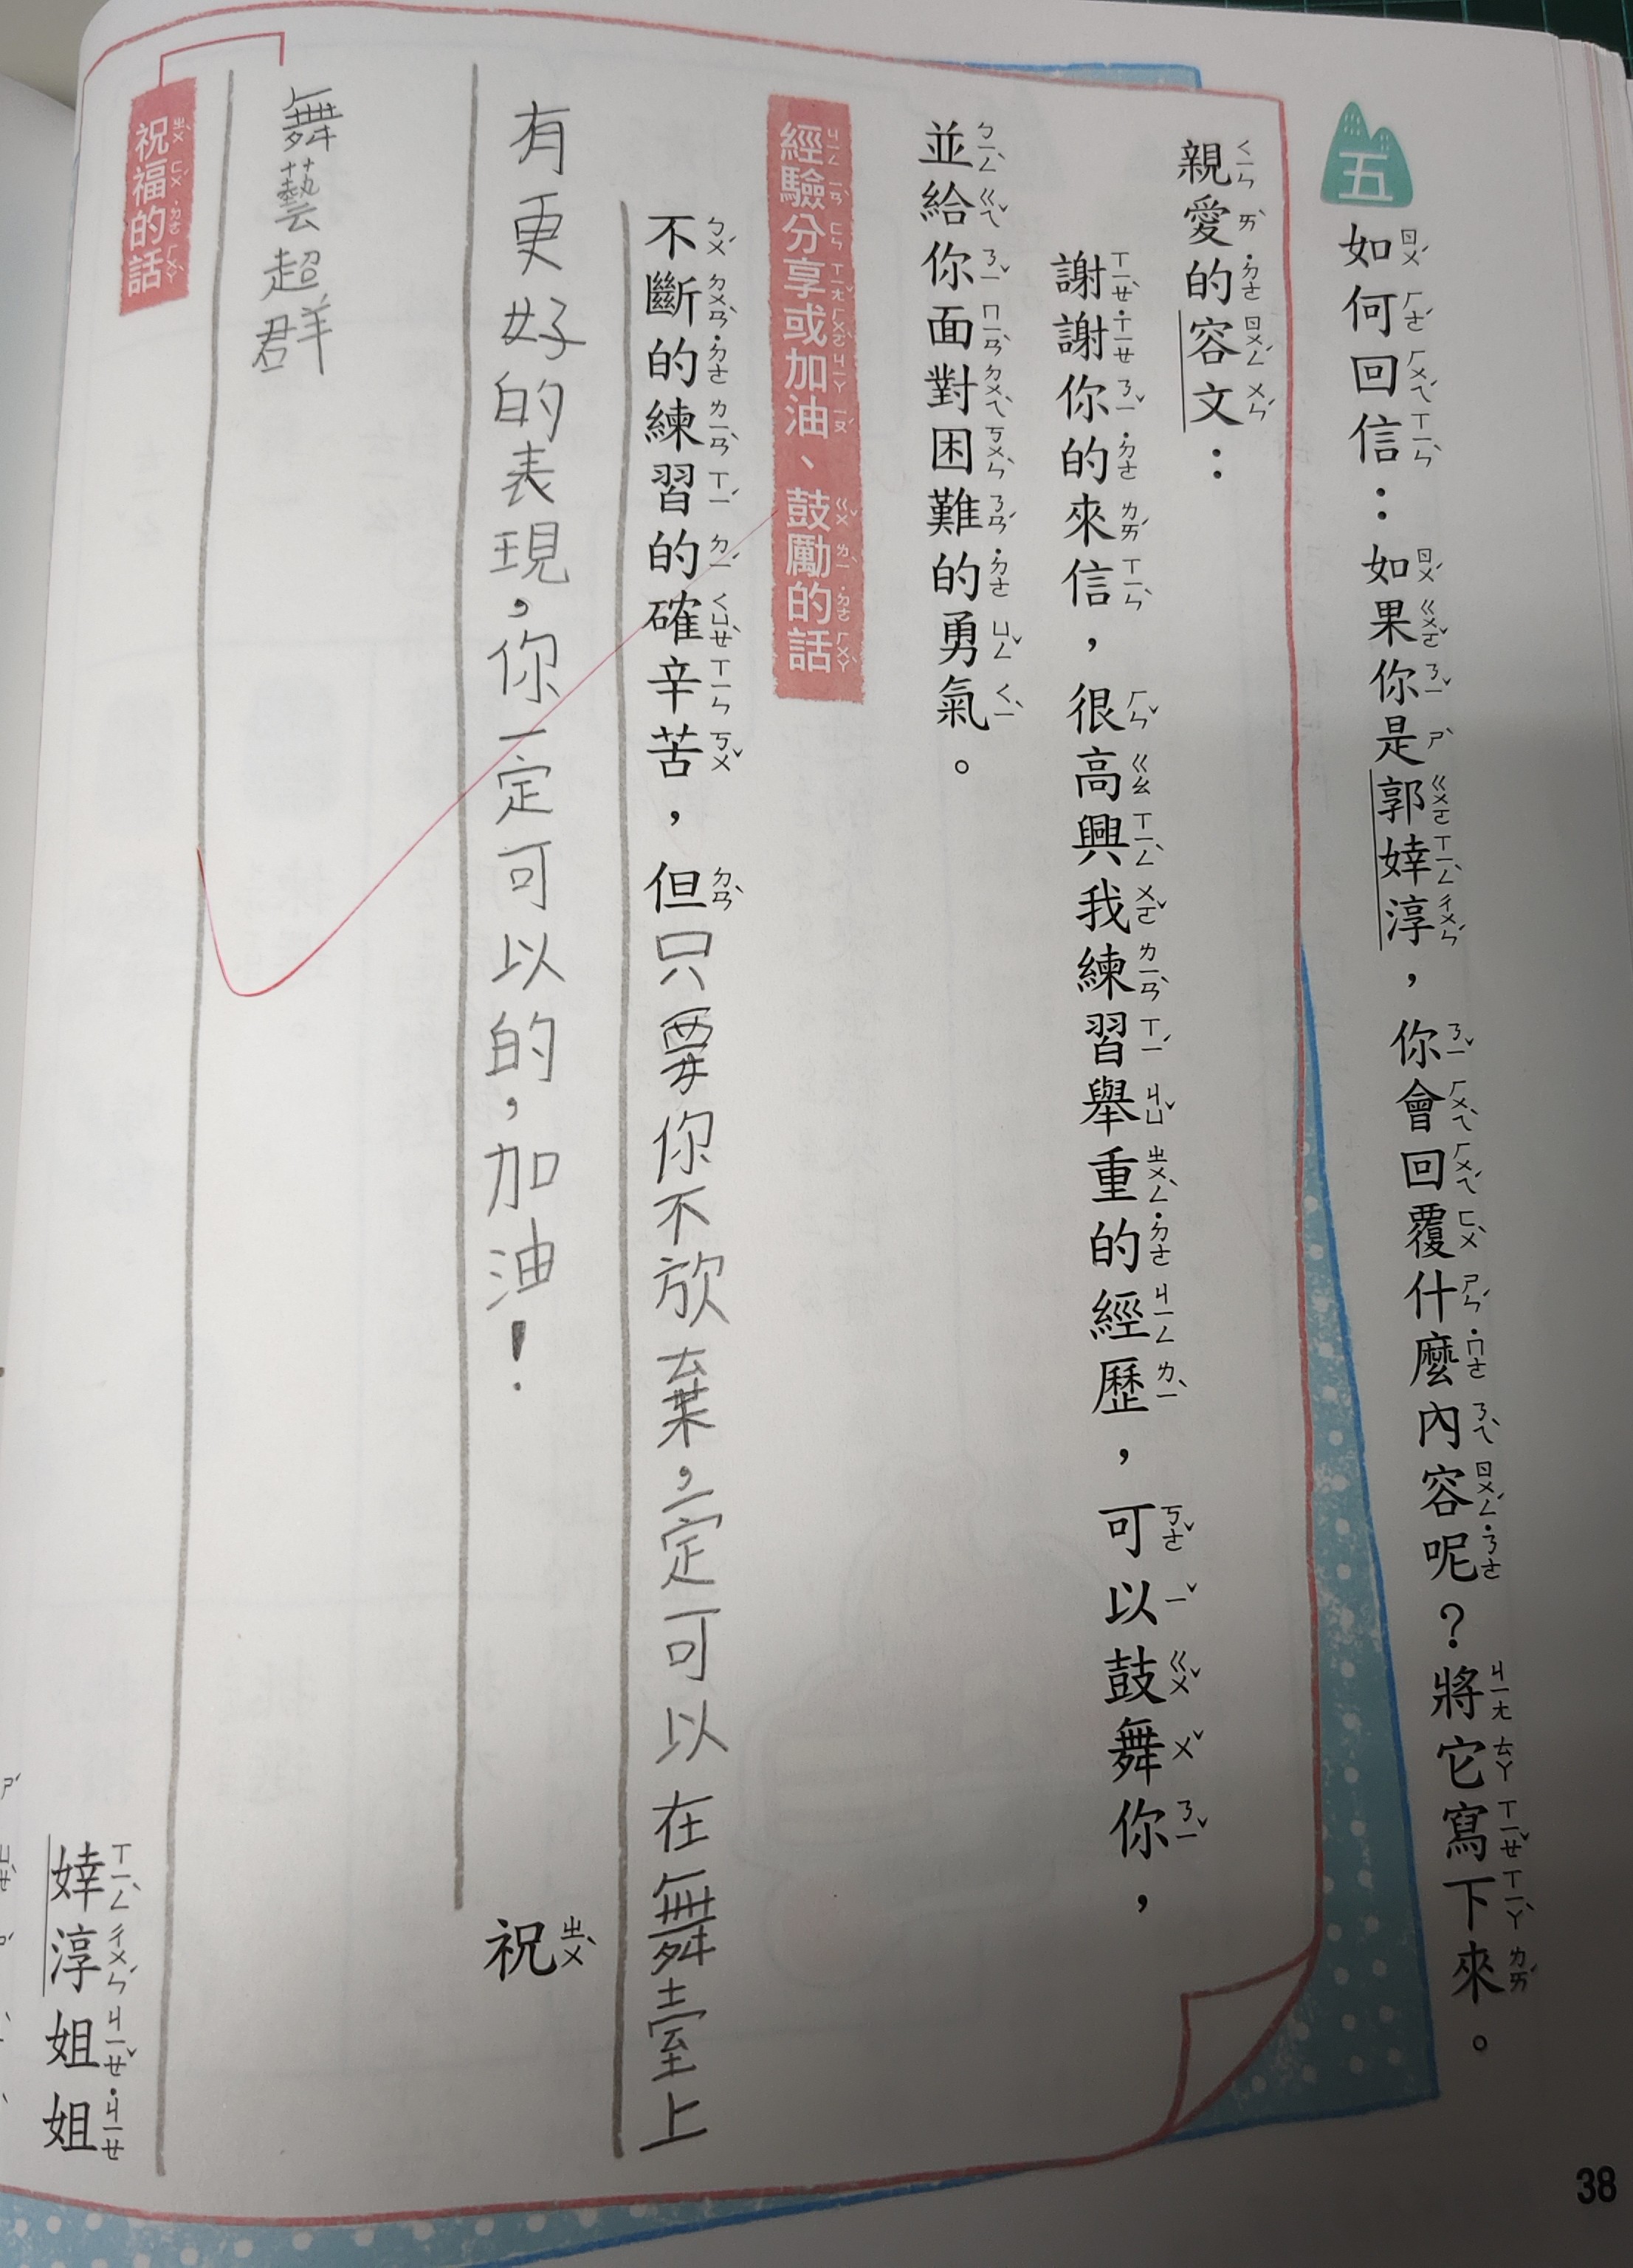 五 如何回信：如果你是郭婞淳，你會回覆什麼內容呢？將它寫下來。
親愛的容文：
謝謝你的來信，很高興我練習舉重的經歷，可以鼓舞你，
並給你面對困難的勇氣。
經驗分享或加油、鼓勵的話
不斷的練習的確辛苦，但只要你不放棄，一定可以在舞臺上
有更好的表現，你一定可以的，加油！
祝
舞藝超群
祝福的話
婞淳姐姐
38